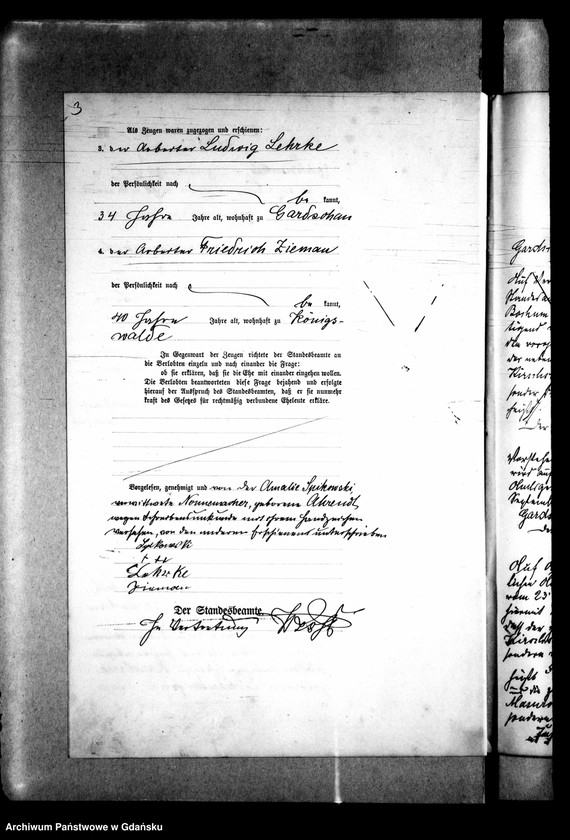 3
Als Zeugen waren zugezogen und erschienen:
3. der Arbeiter Ludwig Lehrke
der Persönlichkeit nach
be kannt,
34 Jahre Jahre alt, wohnhaft zu Gardschau
4. der Arbeiter Friedrich Zieman
der Persönlichkeit nach
be kannt,
40 Jahre Jahre alt, wohnhaft zu Königs-
walde
In Gegenwart der Zeugen richtete der Standesbeamte an
die Verlobten einzeln und nach einander die Frage:
ob sie erklären, daß sie die Ehe mit einander eingehen wollen.
Die Verlobten beantworteten diese Frage bejahend und erfolgte
hierauf der Ausspruch des Standesbeamten, daß er sie nunmehr
kraft des Gesetzes für rechtmäßig verbundene Eheleute erkläre.
Vorgelesen, genehmigt und von der Amalie Spikowski
verwittwete Nonnenmacher, geborene Ahrendt,
wegen Schreibensunkunde mit ihrem Handzeichen
versehen, von den anderen Erschienenen unterschrieben
Spikowski
+ + +
Lehrke
Zieman
Der Standesbeamte.
In Vertretung
Gards
Auf
Standes
Bochum
der neben
Kirchl
sonder
Der
Vorstehe
wird
Septem
Gards
Auf
vom 23
hiermit
sondern
und
sondern
Archiwum Państwowe w Gdańsku